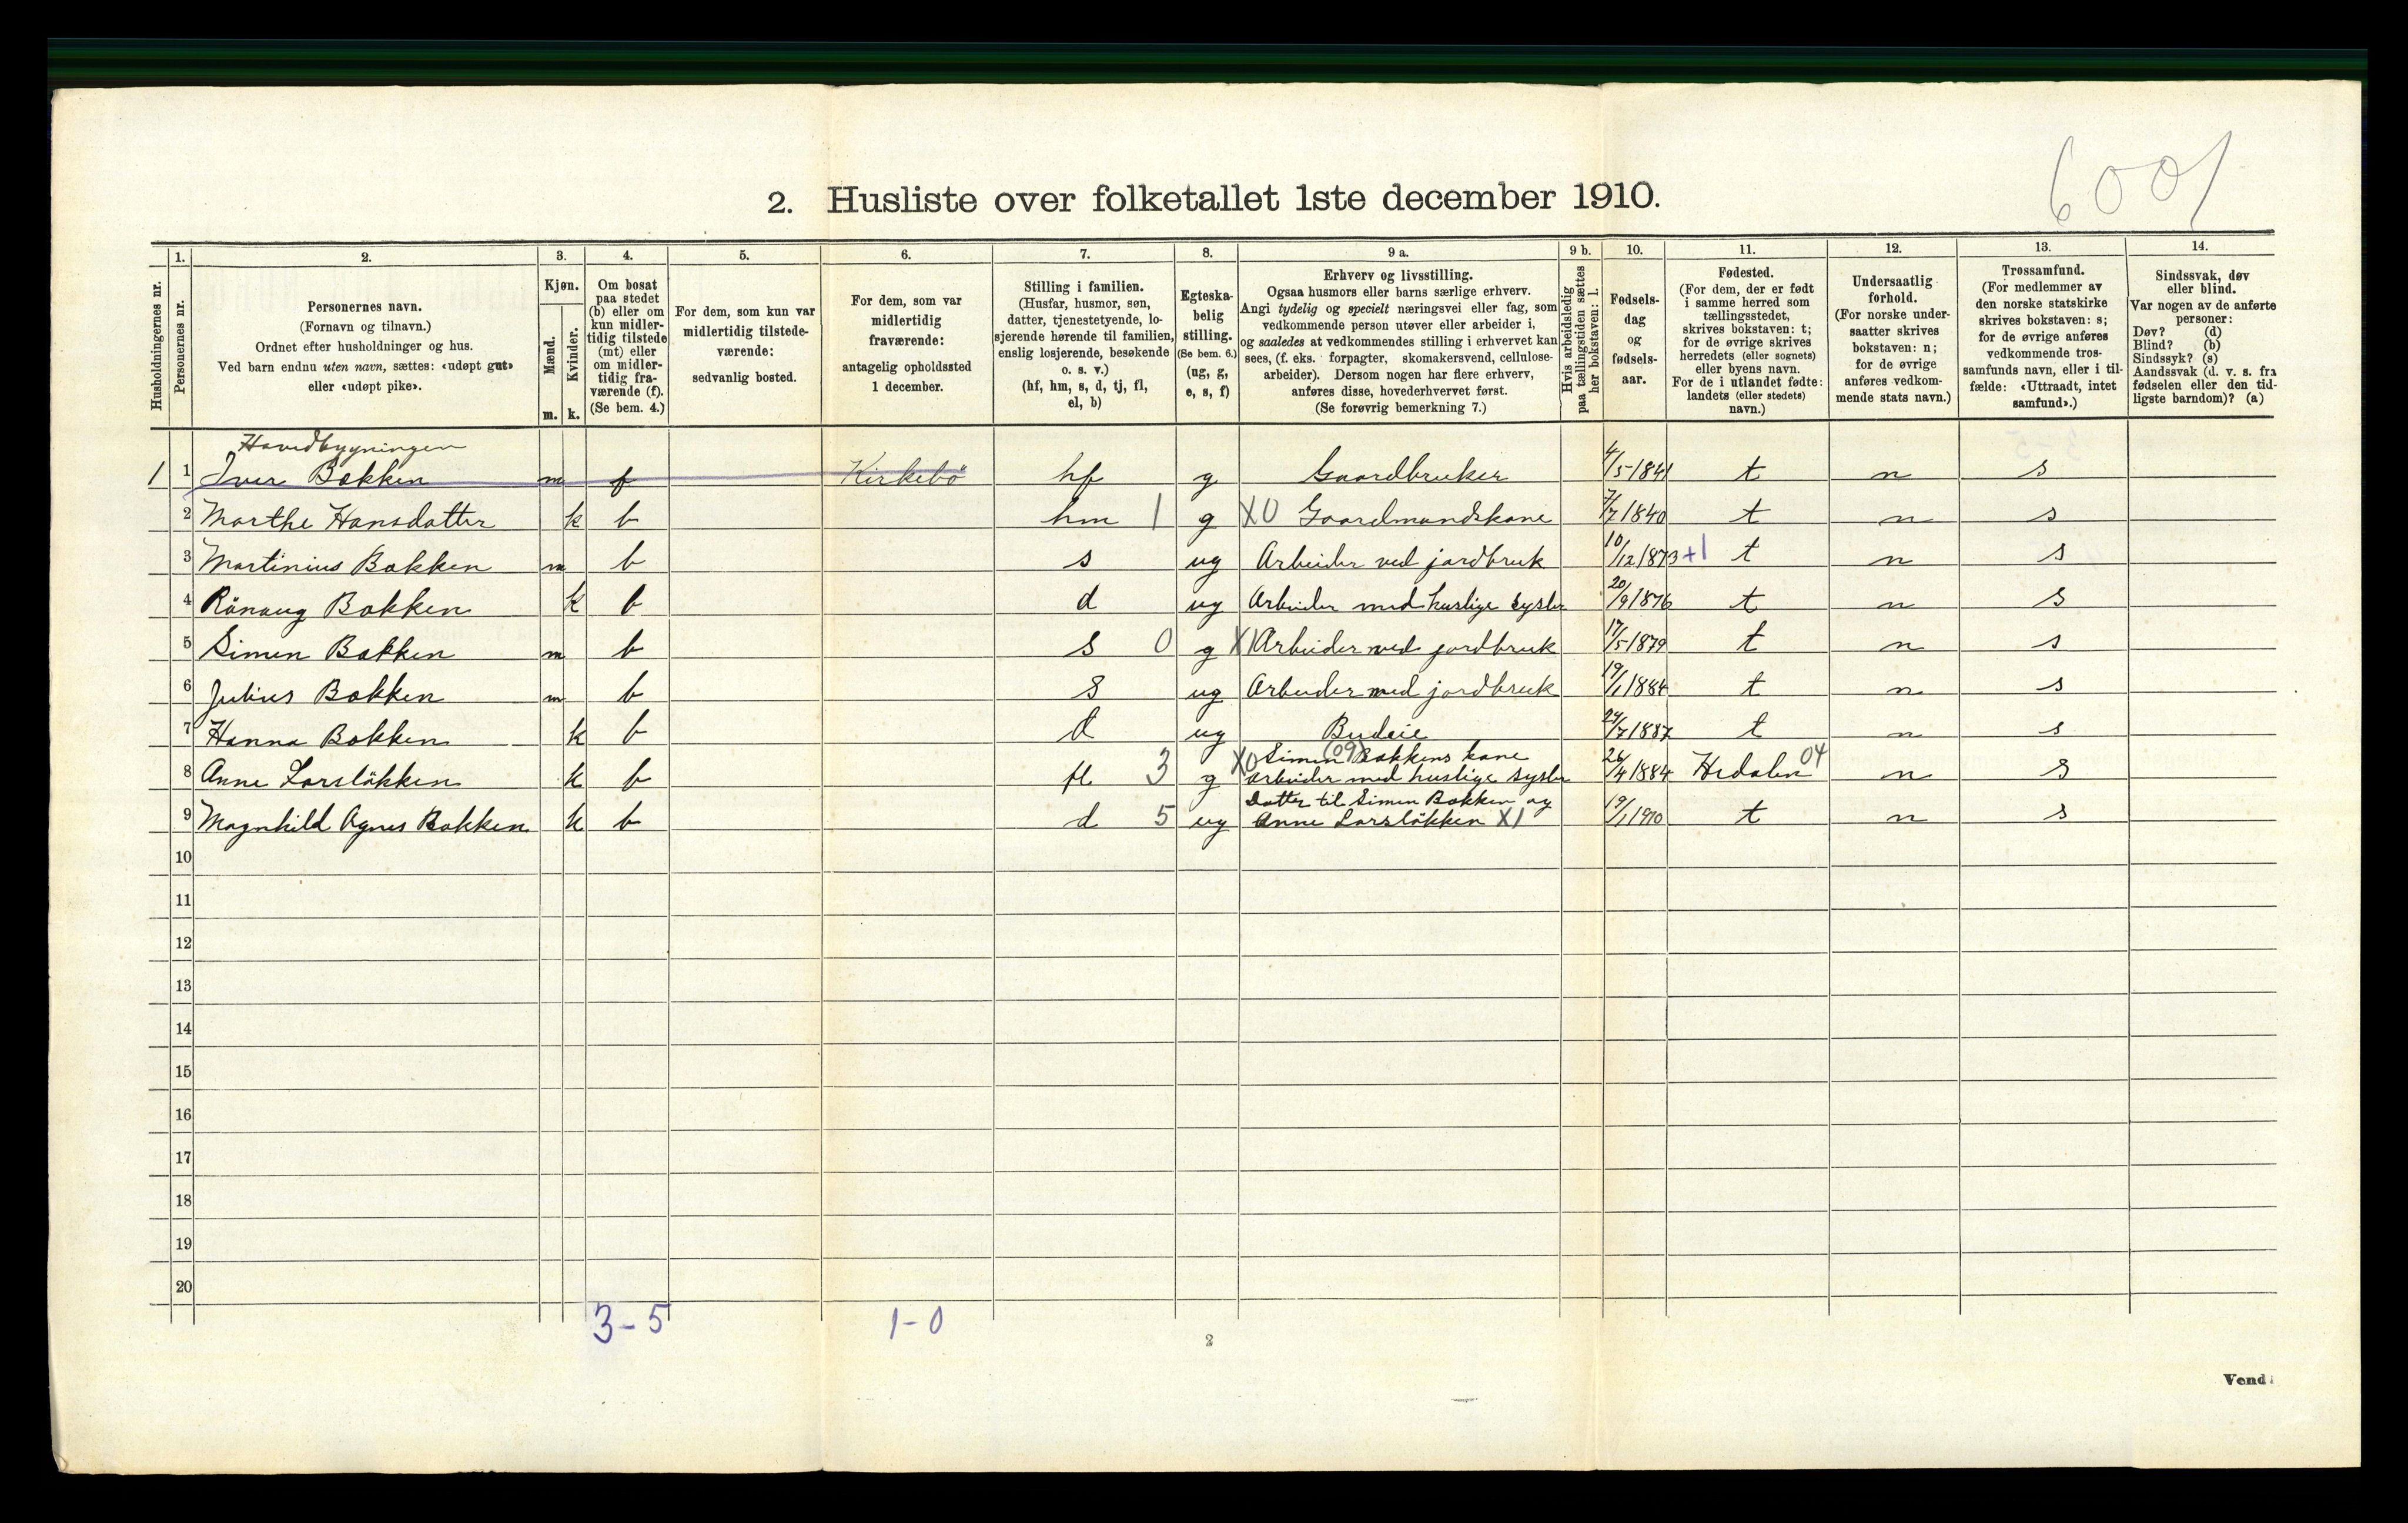 6001
2. Husliste over folketallet 1ste december 1910.
Husholdningernes nr.
1.
Personernes nr.
2.
Personernes navn.
(Fornavn og tilnavn.)
Ordnet efter husholdninger og hus.
Ved barn endnu uten navn, sættes: «udøpt gut»
eller «udøpt pike».
3.
Kjøn.
Mænd.
Kvinder.
m. k.
4.
Om bosat
paa stedet
(b) eller om
kun midler-
tidig tilstede
(mt) eller
om midler-
tidig fra-
værende (f).
(Se bem. 4.)
5.
For dem, som kun var
midlertidig tilstede-
værende:
sedvanlig bosted.
6.
For dem, som var
midlertidig
fraværende:
antagelig opholdssted
1 december.
7.
Stilling i familien.
(Husfar, husmor, søn,
datter, tjenestetyende, lo-
sjerende hørende til familien,
enslig losjerende, besøkende
o. s. v.)
(hf, hm, s, d, tj, fl,
el, b)
8.
Egteska-
belig
stilling.
(Se bem. 6.)
(ug, g,
e, s, f)
9 a.
Erhverv og livsstilling.
Ogsaa husmors eller barns særlige erhverv.
Angi tydelig og specielt næringsvei eller fag, som
vedkommende person utøver eller arbeider i,
og saaledes at vedkommendes stilling i erhvervet kan
sees, (f. eks. forpagter, skomakersvend, cellulose-
arbeider). Dersom nogen har flere erhverv,
anføres disse, hovederhvervet først.
(Se forøvrig bemerkning 7.)
9 b.
Hvis arbeidsledig
paa tællingstiden sættes
her bokstaven: l.
10.
Fødsels-
dag
og
fødsels-
aar.
11.
Fødested.
(For dem, der er født
i samme herred som
tællingsstedet,
skrives bokstaven: t;
for de øvrige skrives
herredets (eller sognets)
eller byens navn.
For de i utlandet fødte:
landets (eller stedets)
navn.)
12.
Undersaatlig
forhold.
(For norske under-
saatter skrives
bokstaven: n;
for de øvrige
anføres vedkom-
mende stats navn.)
13.
Trossamfund.
(For medlemmer av
den norske statskirke
skrives bokstaven: s;
for de øvrige anføres
vedkommende tros-
samfunds navn, eller i til-
fælde: «Uttraadt, intet
samfund».)
14.
Sindssvak, døv
eller blind.
Var nogen av de anførte
personer:
Døv? (d)
Blind? (b)
Sindssyk? (s)
Aandssvak (d. v. s. fra
fødselen eller den tid-
ligste barndom)? (a)
Hovedbygningen
1 1 Iver Bakken m f Kirkebö hf g Gaardbruker 4/5 1841 t n s
2 Marthe Hansdatter k b hm 1 g X0 Gaardmandskone 7/7 1840 t n s
3 Martinius Bakken m b s ug Arbeider ved jordbruk 10/12 1873 +1 t n s
4 Rönaug Bakken k b d ug Arbeider med huslige sysler 20/9 1876 t n s
5 Simen Bakken m b s 0 g X1 Arbeider med jordbruk 17/5 1879 t n s
6 Julius Bakken m b s ug Arbeider med jordbruk 19/1 1884 t n s
7 Hanna Bakken k b d ug Budeie 24/7 1887 t n s
8 Anne Larslökken k b fl 3 g X0 Simen (09) Bakkens kone
arbeider med huslige sysler 26/4 1884 Hedalen 04 n s
9 Magnhild Agnes Bakken k b d 5 ug Datter til Simen Bakken og
Anne Larslökken X1 19/1 1910 t n s
10
11
12
13
14
15
16
17
18
19
20
3-5 1-0
2
Vend